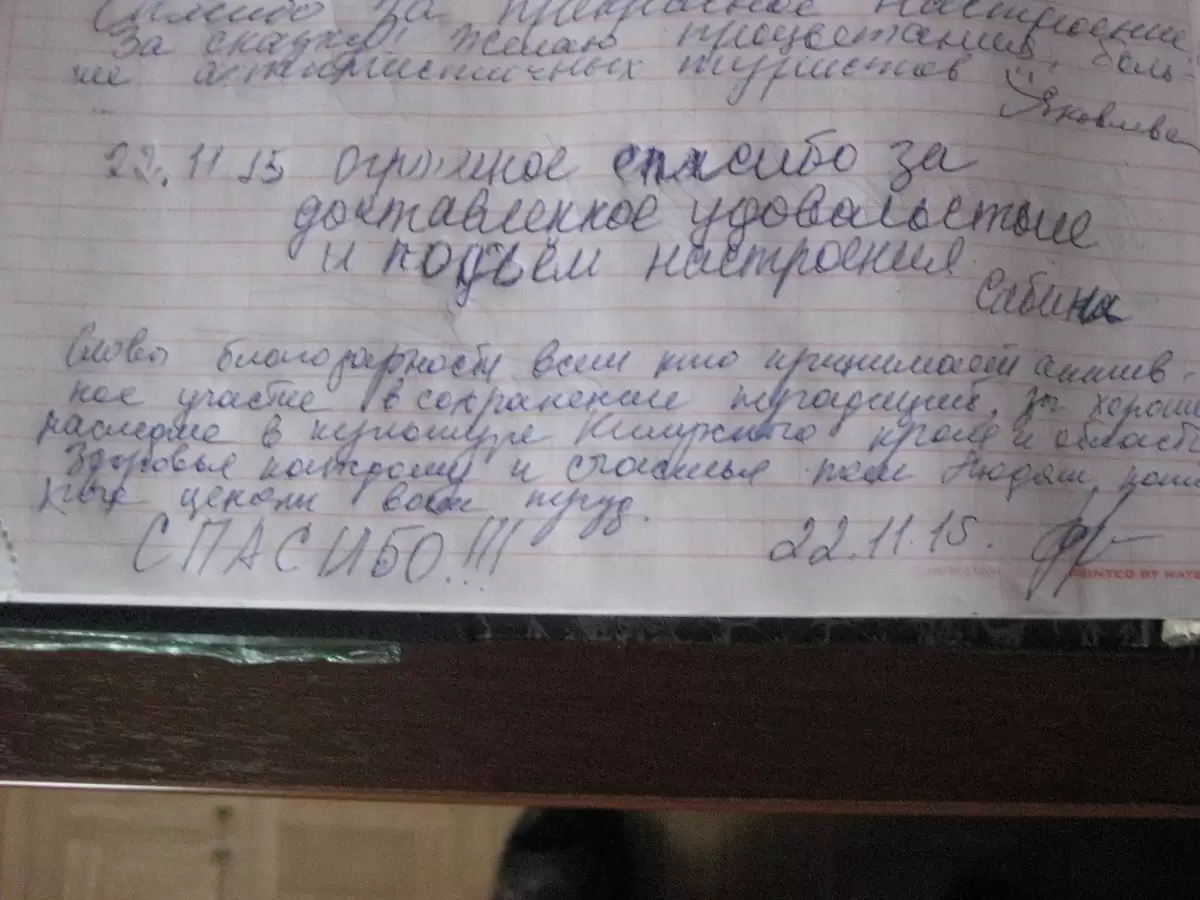 Спасибо за прекрасное настроение
За сказку! Желаю процветания, боль-
ше оптимистичных туристов
Яковлева
22.11.15 огромное спасибо за
доставленное удовольствие
и подъём настроения
Сабина
Слова благодарности всем кто принимает актив-
ное участие в сохранение традиций, за хорош
наследие в культуре края и област
Здоровья каждому и счастья тем людям, кото
рые ценят ваш труд.
СПАСИБО!!!
22.11.15.
PRINTED BY HATB